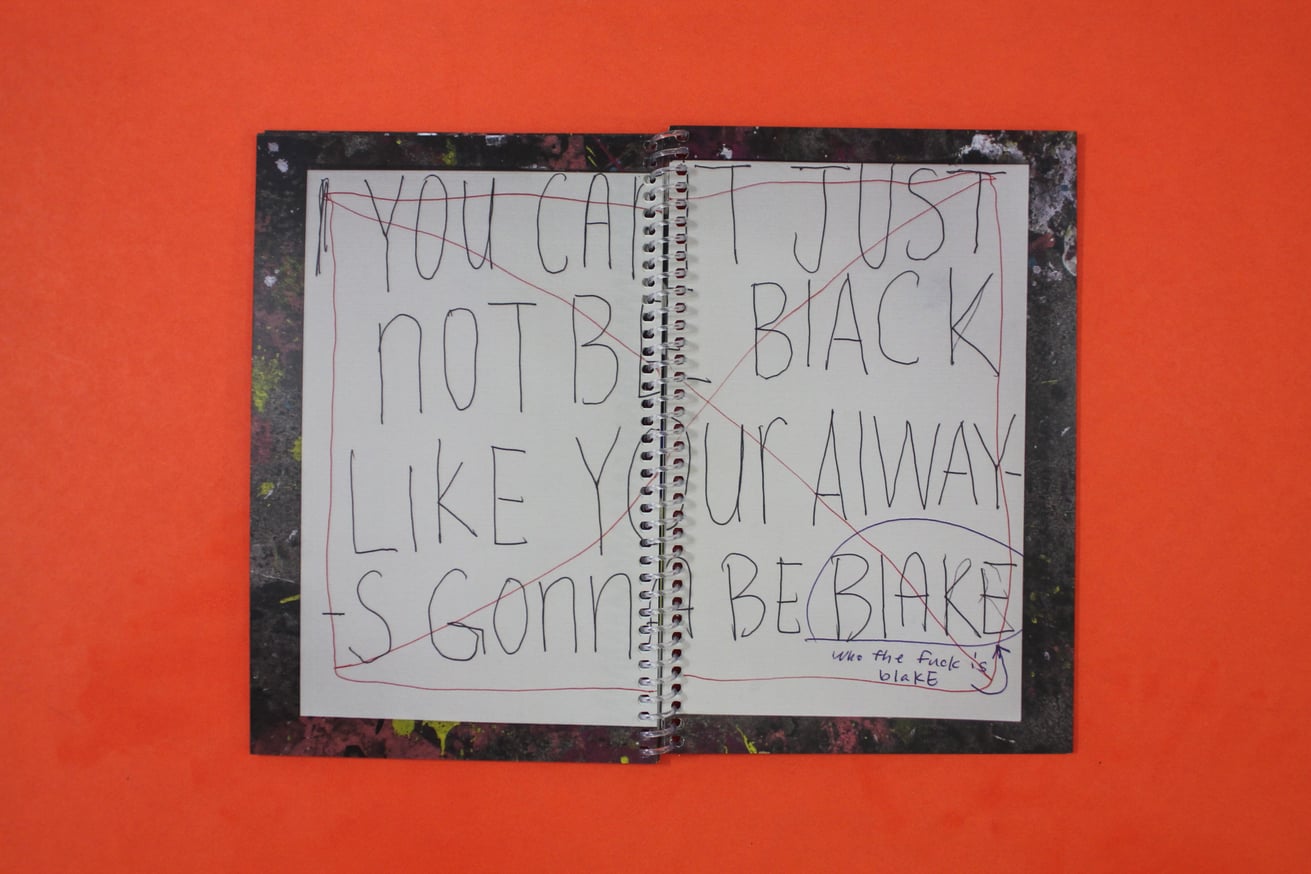 YOU CAN'T JUST
nOT BE BlACK
LIKE YOUr AlWAY-
-S GonnA BE BlAKE
who the fuck is
blakE